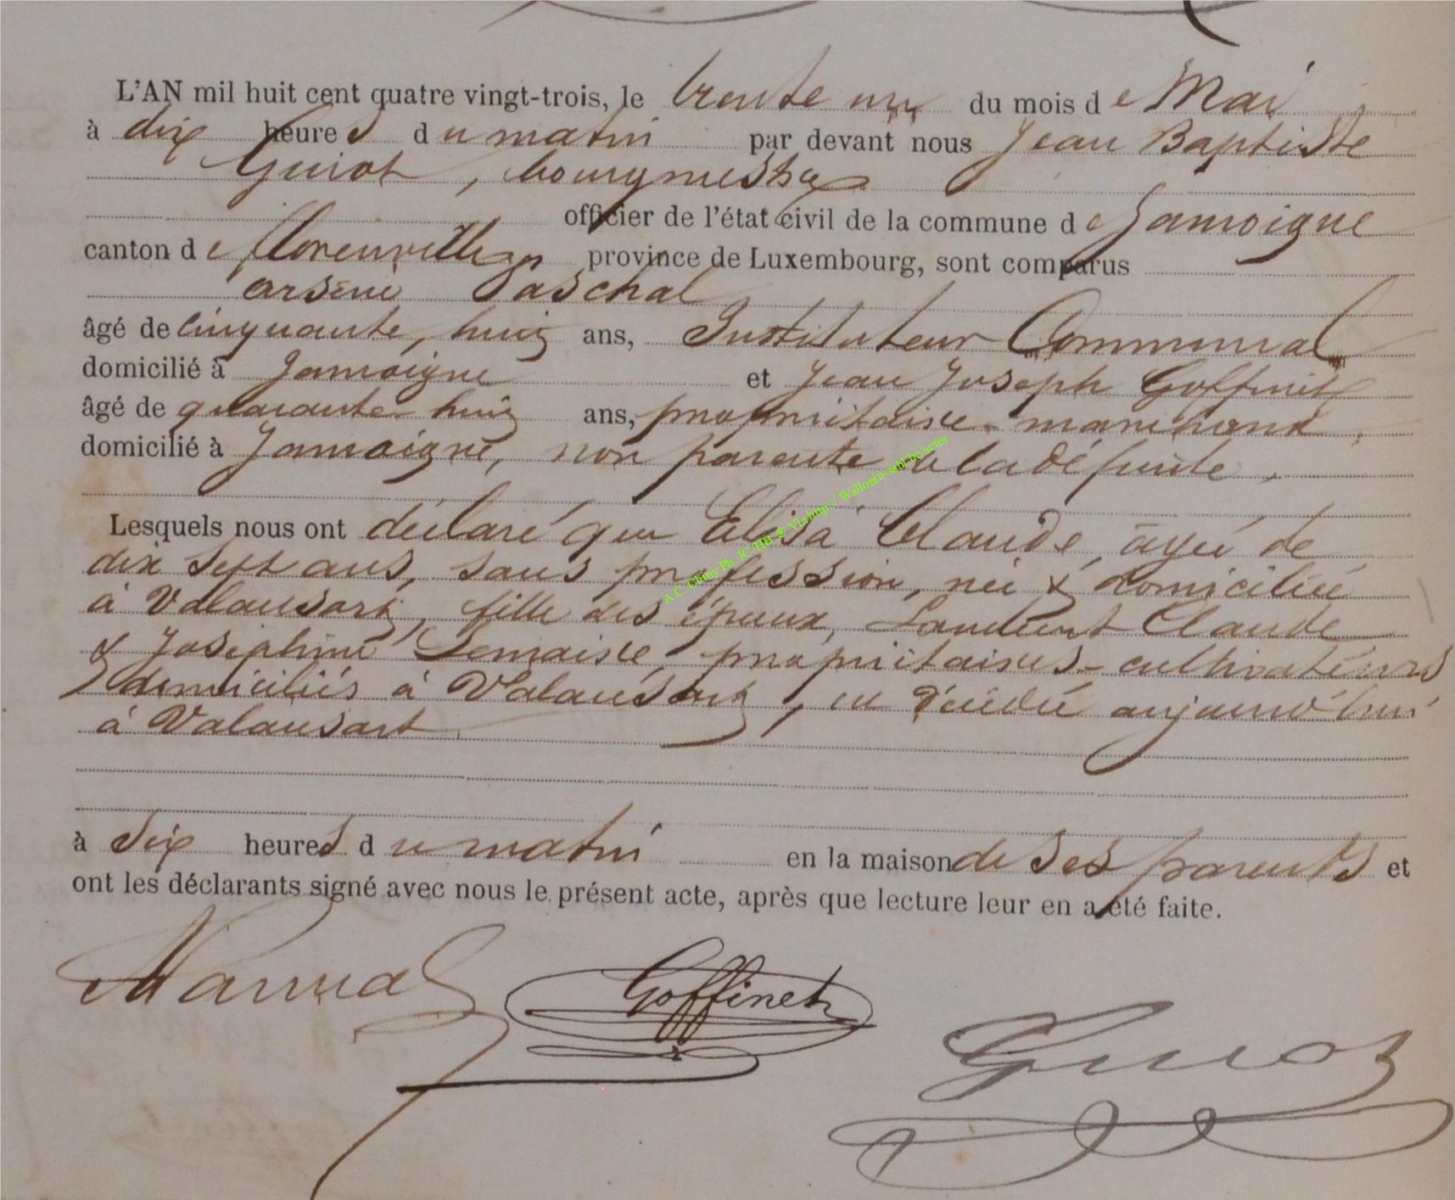 L'AN mil huit cent quatre vingt-trois, le trente un du mois de Mai
à dix heures du matin par devant nous Jean Baptiste
Guiot, bourgmestre
officier de l'état civil de la commune de Jamoigne
canton de florenville province de Luxembourg, sont comparus
arsène Paschal
âgé de cinquante, huit ans, Instituteur Communal
domicilié à Jamoigne et Jean Joseph Goffinet
âgé de quarante huit ans, propriétaire-marchand,
domicilié à Jamoigne, non parents de la défunte,
Lesquels nous ont déclaré que Elisa Claude, agée de
dix sept ans, sans profession, née & domiciliée
à Valansart, fille des époux, Lambert Claude
& Joséphine Lemaire, propriétaires-cultivateurs
domiciliés à Valansart, est décédée aujourd'hui
à Valansart.
à six heures du matin en la maison de ses parents et
ont les déclarants signé avec nous le présent acte, après que lecture leur en a été faite.
Goffinet
Guiot